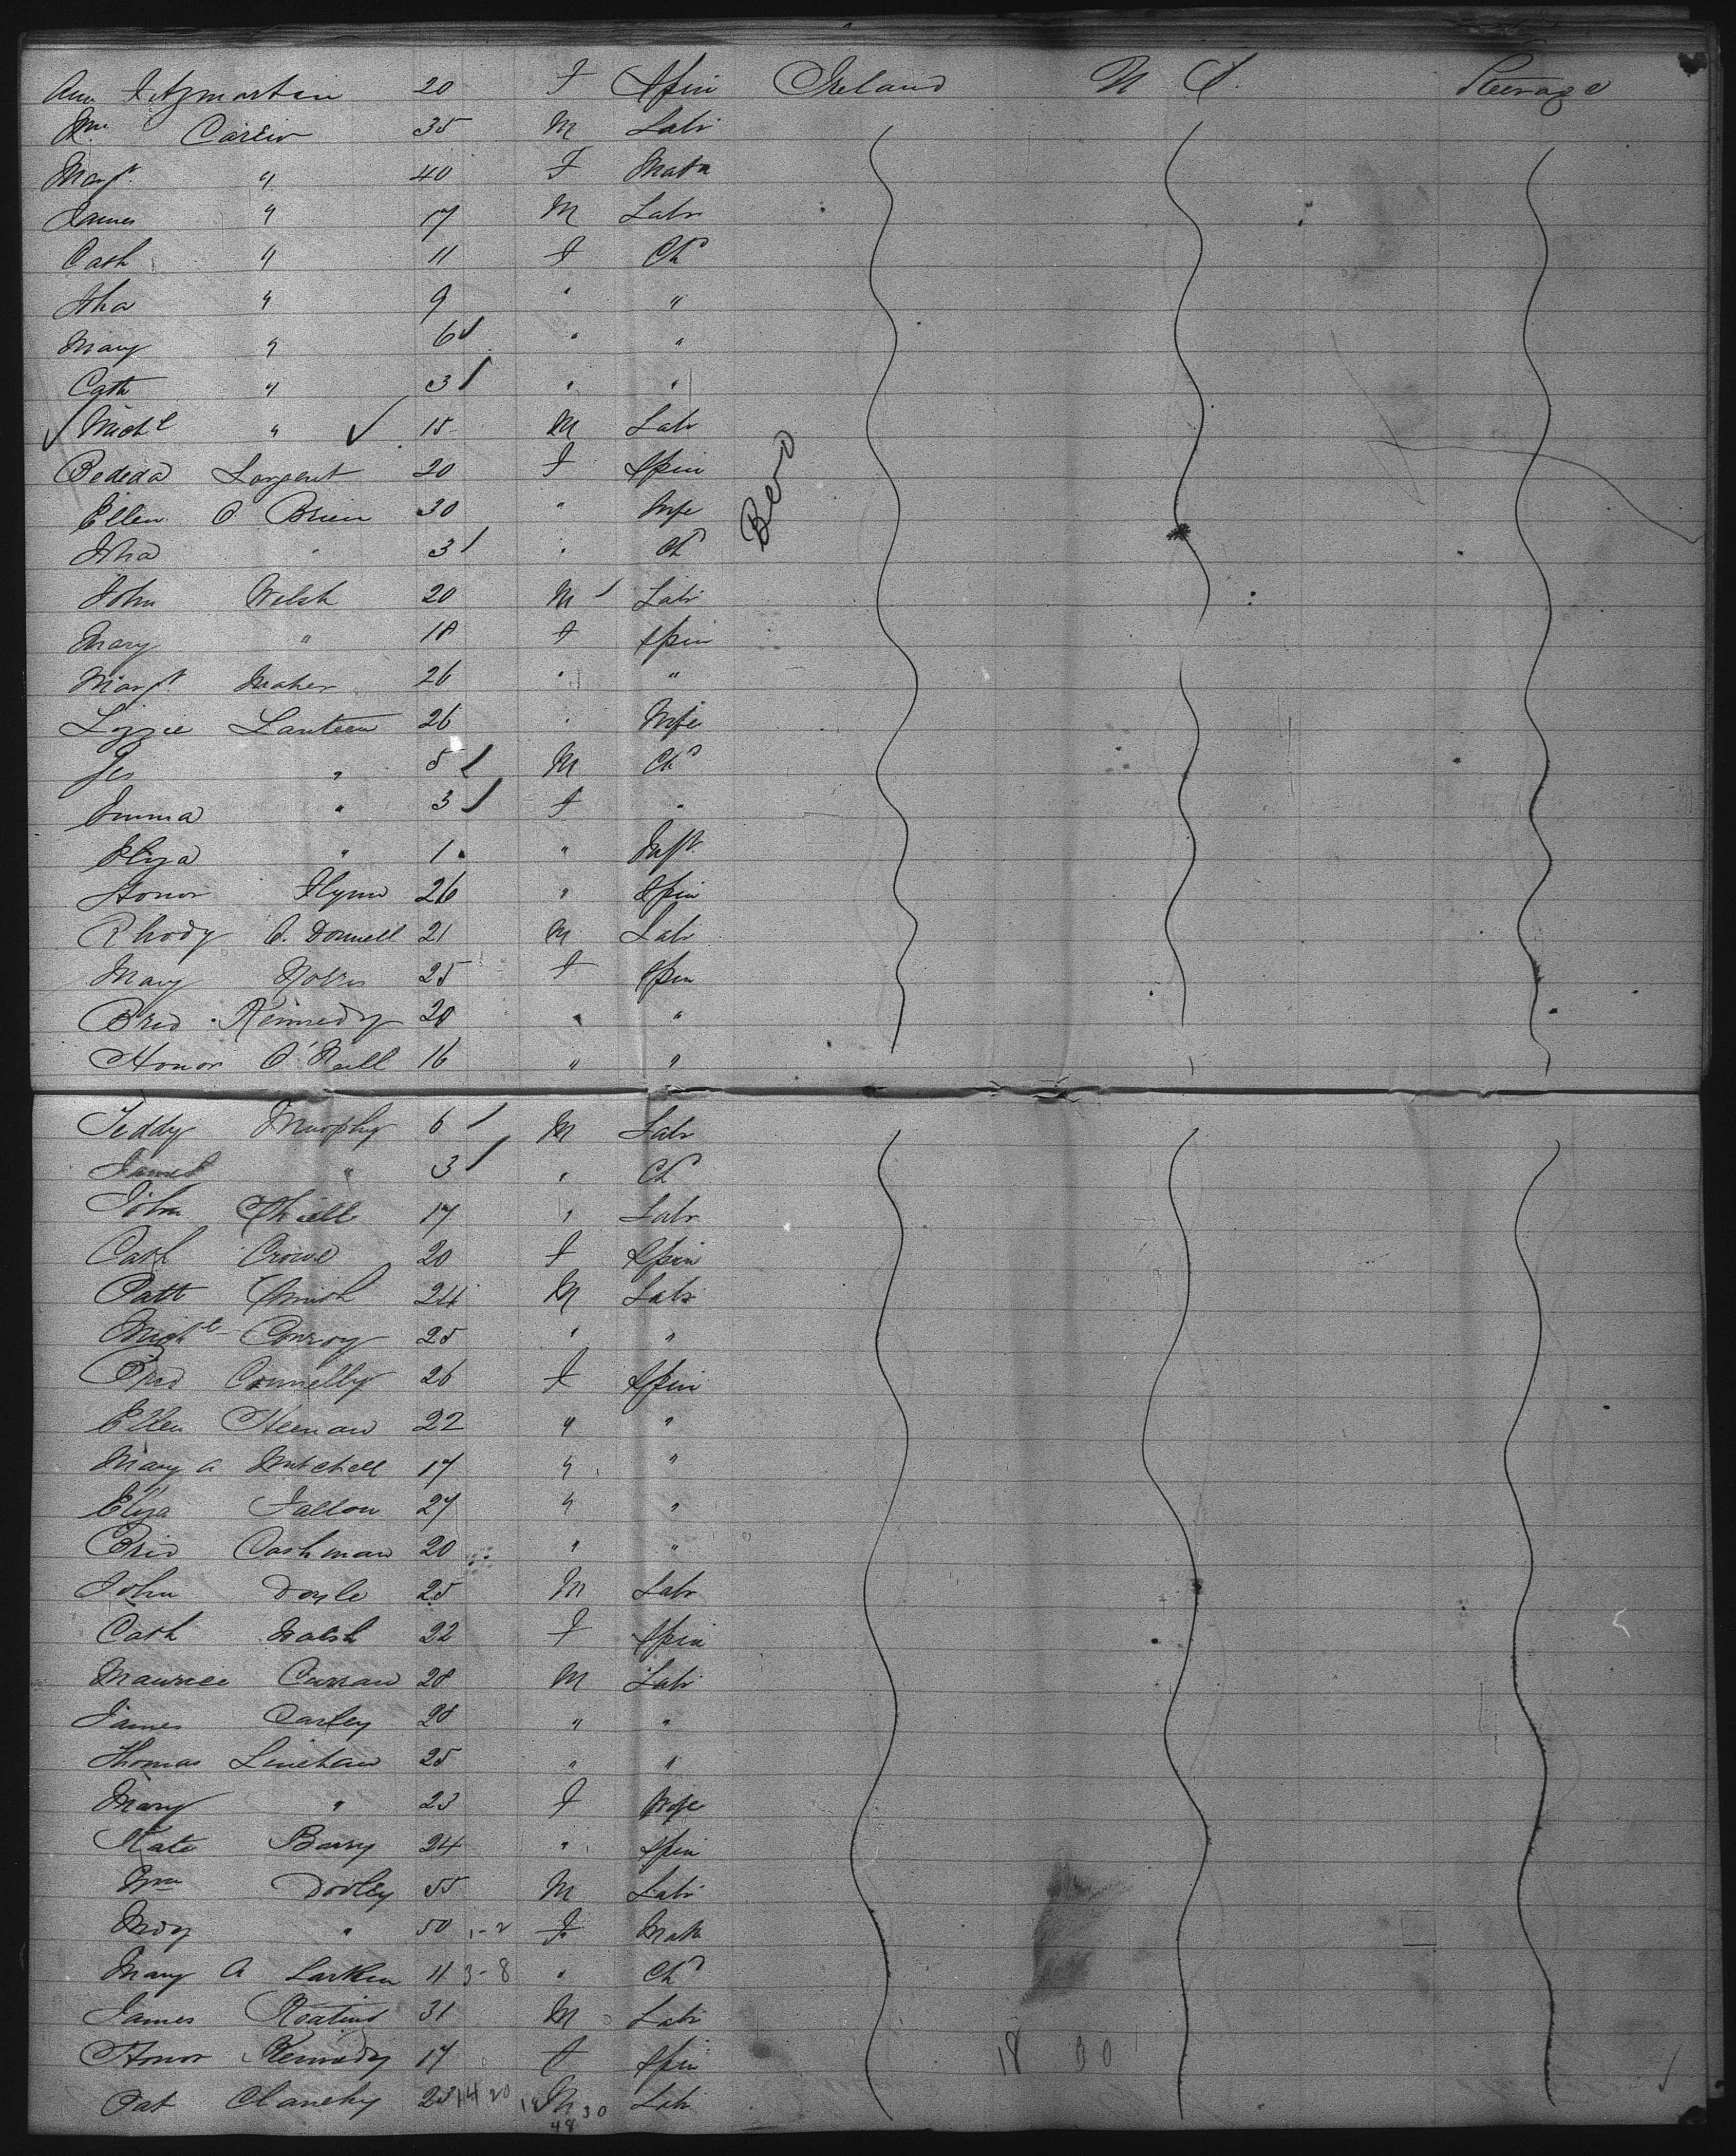 Ann Fitzmartin 20 F Spin Ireland U S. Steerage
Wm 35 M Labr
Margt " 40 F Matn
James " 17 M Labr
Cath " 11 F Chd
Joha " 9 " "
Mary " 6 " "
Cath " 3 " "
Michl " 15 M Labr
Bedelia Sargent 20 F Spin
Ellen O Brien 30 " Wife
Joha " 3 " Chd
John Welsh 20 M Labr
Mary " 18 F Spin
Margt Maher 26 " "
Lizzie Lanteen 26 " Wife
Jas " 5 M Chd
Emma " 3 F "
Eliza " 1 " Inft
Honor Flynn 26 " Spin
Rhody O. Donnell 21 M Labr
Mary Norris 25 F Spin
Brid Kennedy 20 " "
Honor O'Neill 16 " "
Teddy Murphy 6 M Labr
James " 3 " Chd
John 17 " Labr
Cath Crowe 20 F Spin
Patt Smith 24 M Labr
Michl Conroy 25 " "
Brid Connelly 26 F Spin
Ellen Heenan 22 " "
Mary A Mitchell 17 " "
Eliza Fallon 27 " "
Brid Cashman 20 " "
John Doyle 25 M Labr
Cath Walsh 22 F Spin
Maurice Curran 28 M Labr
James Carley 28 " "
Thomas Linehan 25 " "
Mary " 23 F Wife
Kate Barry 24 " Spin
Wm Dooley 55 M Labr
" 50 1-2 F Matn
Mary A Larkin 11 3-8 " Chd
James Keating 31 M Labr
Honor Kennedy 17 F Spin 18 30
Pat Clanchy 28 14 20 18 M 30 Labr
48